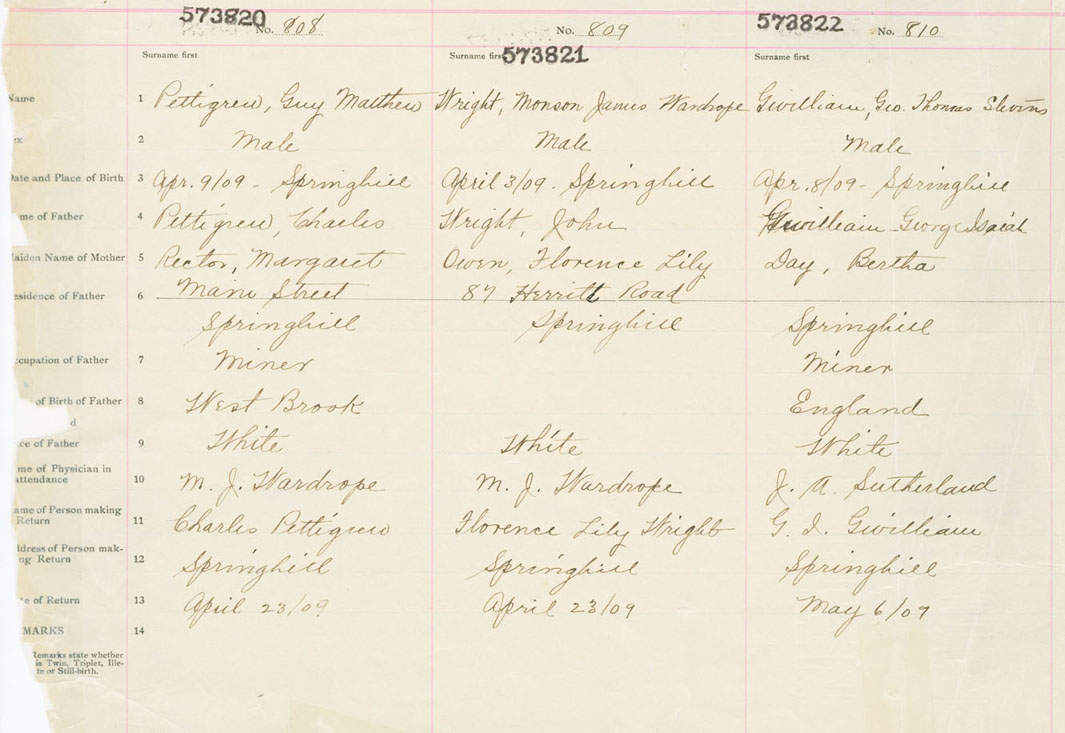 573820 No. 808 No. 809 573822 No. 810
Surname first Surname first 573821 Surname first
Name 1 Pettigrew, Guy Matthew Wright, Monson James Wardrope Gwilliam, Geo. Thomas
ex 2 Male Male Male
Date and Place of Birth 3 Apr. 9/09 - Springhill April 3/09. Springhill Apr. 8/09 - Springhill
me of Father 4 Pettigrew, Charles Wright, John Gwilliam George Isaiah
aiden Name of Mother 5 Rector, Margaret Owen, Florence Lily Day, Bertha
esidence of Father 6 Main Street 87 Herritt Road
Springhill Springhill Springhill
ccupation of Father 7 Miner Miner
of Birth of Father 8 West Brook England
d
ce of Father 9 White White White
me of Physician in
attendance 10 M. J. Wardrope M. J. Wardrope J. A. Sutherland
ame of Person making
Return 11 Charles Pettigrew Florence Lily Wright G. I. Gwilliam
ddress of Person mak-
ng Return 12 Springhill Springhill Springhill
te of Return 13 April 23/09 April 23/09 May 6/09
MARKS 14
Remarks state whether
is Twin, Triplet, Ille-
te or Still-birth.